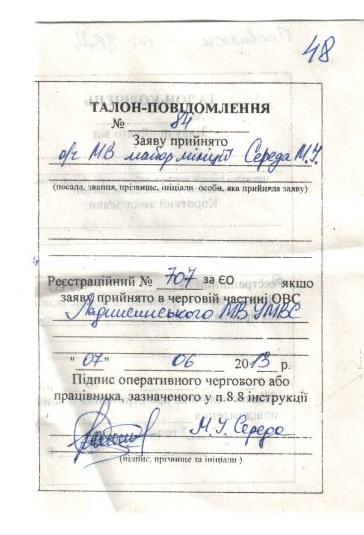 48
ТАЛОН-ПОВІДОМЛЕННЯ
№ 84
Заяву прийнято
о/ч МВ майор міліції Середа М.У.
(посада, звання, прізвище, ініціали особи, яка прийняла заяву)
Реєстраційний № 707 за ЄО якщо
заяву прийнято в черговій частині ОВС
Ладижинського МВ УМВС
"07" 06 2013 р.
Підпис оперативного чергового або
працівника, зазначеного у п.8.8 інструкції
М.У. Середа
(підпис, прізвище та ініціали)